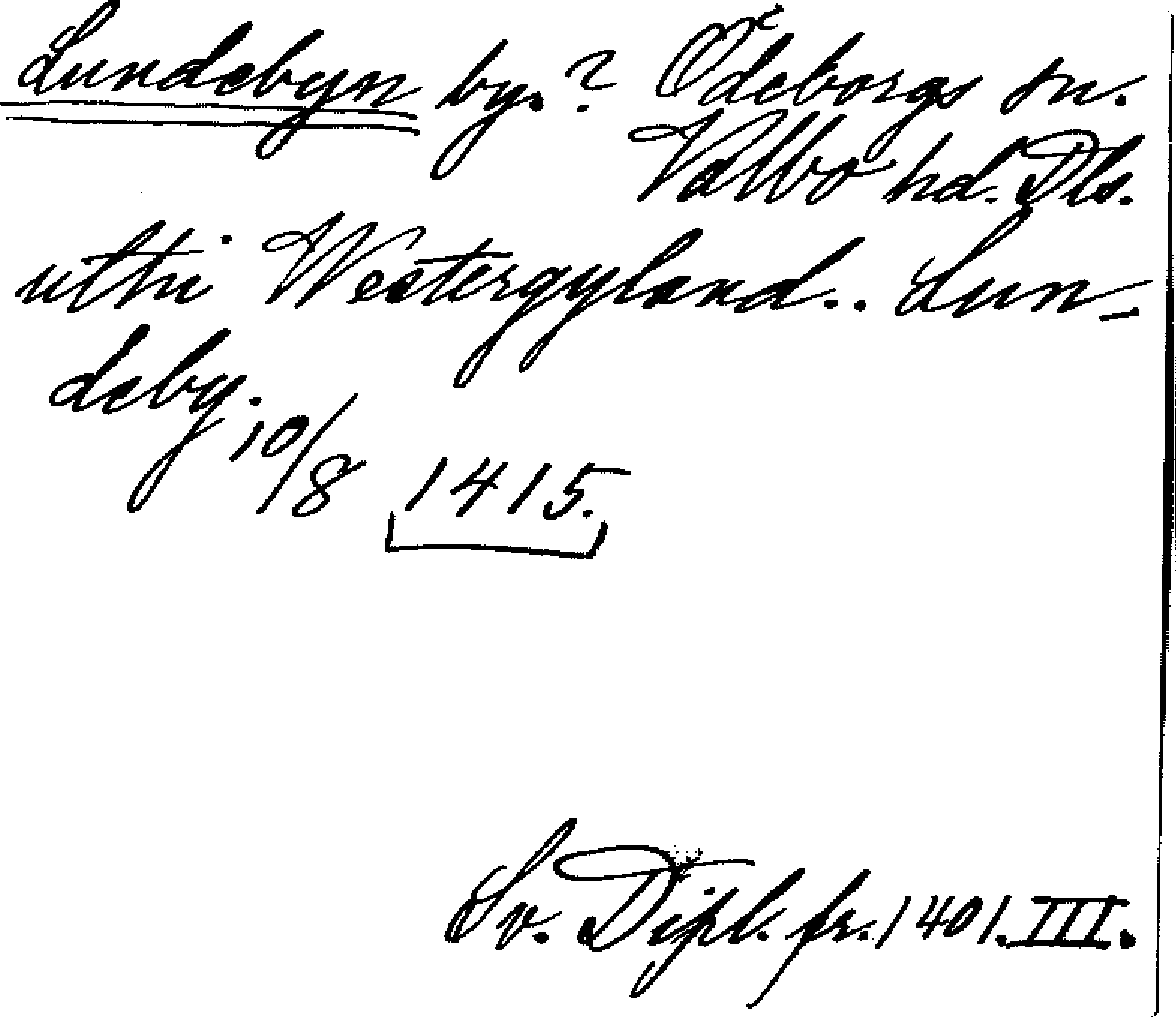 Lundebyn by.? Ödeborgs sn.
Valbo hd. Dls.
uthi Westergyland.. Lun-
deby.
10/8 1415.
Sv. Dipl. fr. 1401. III.